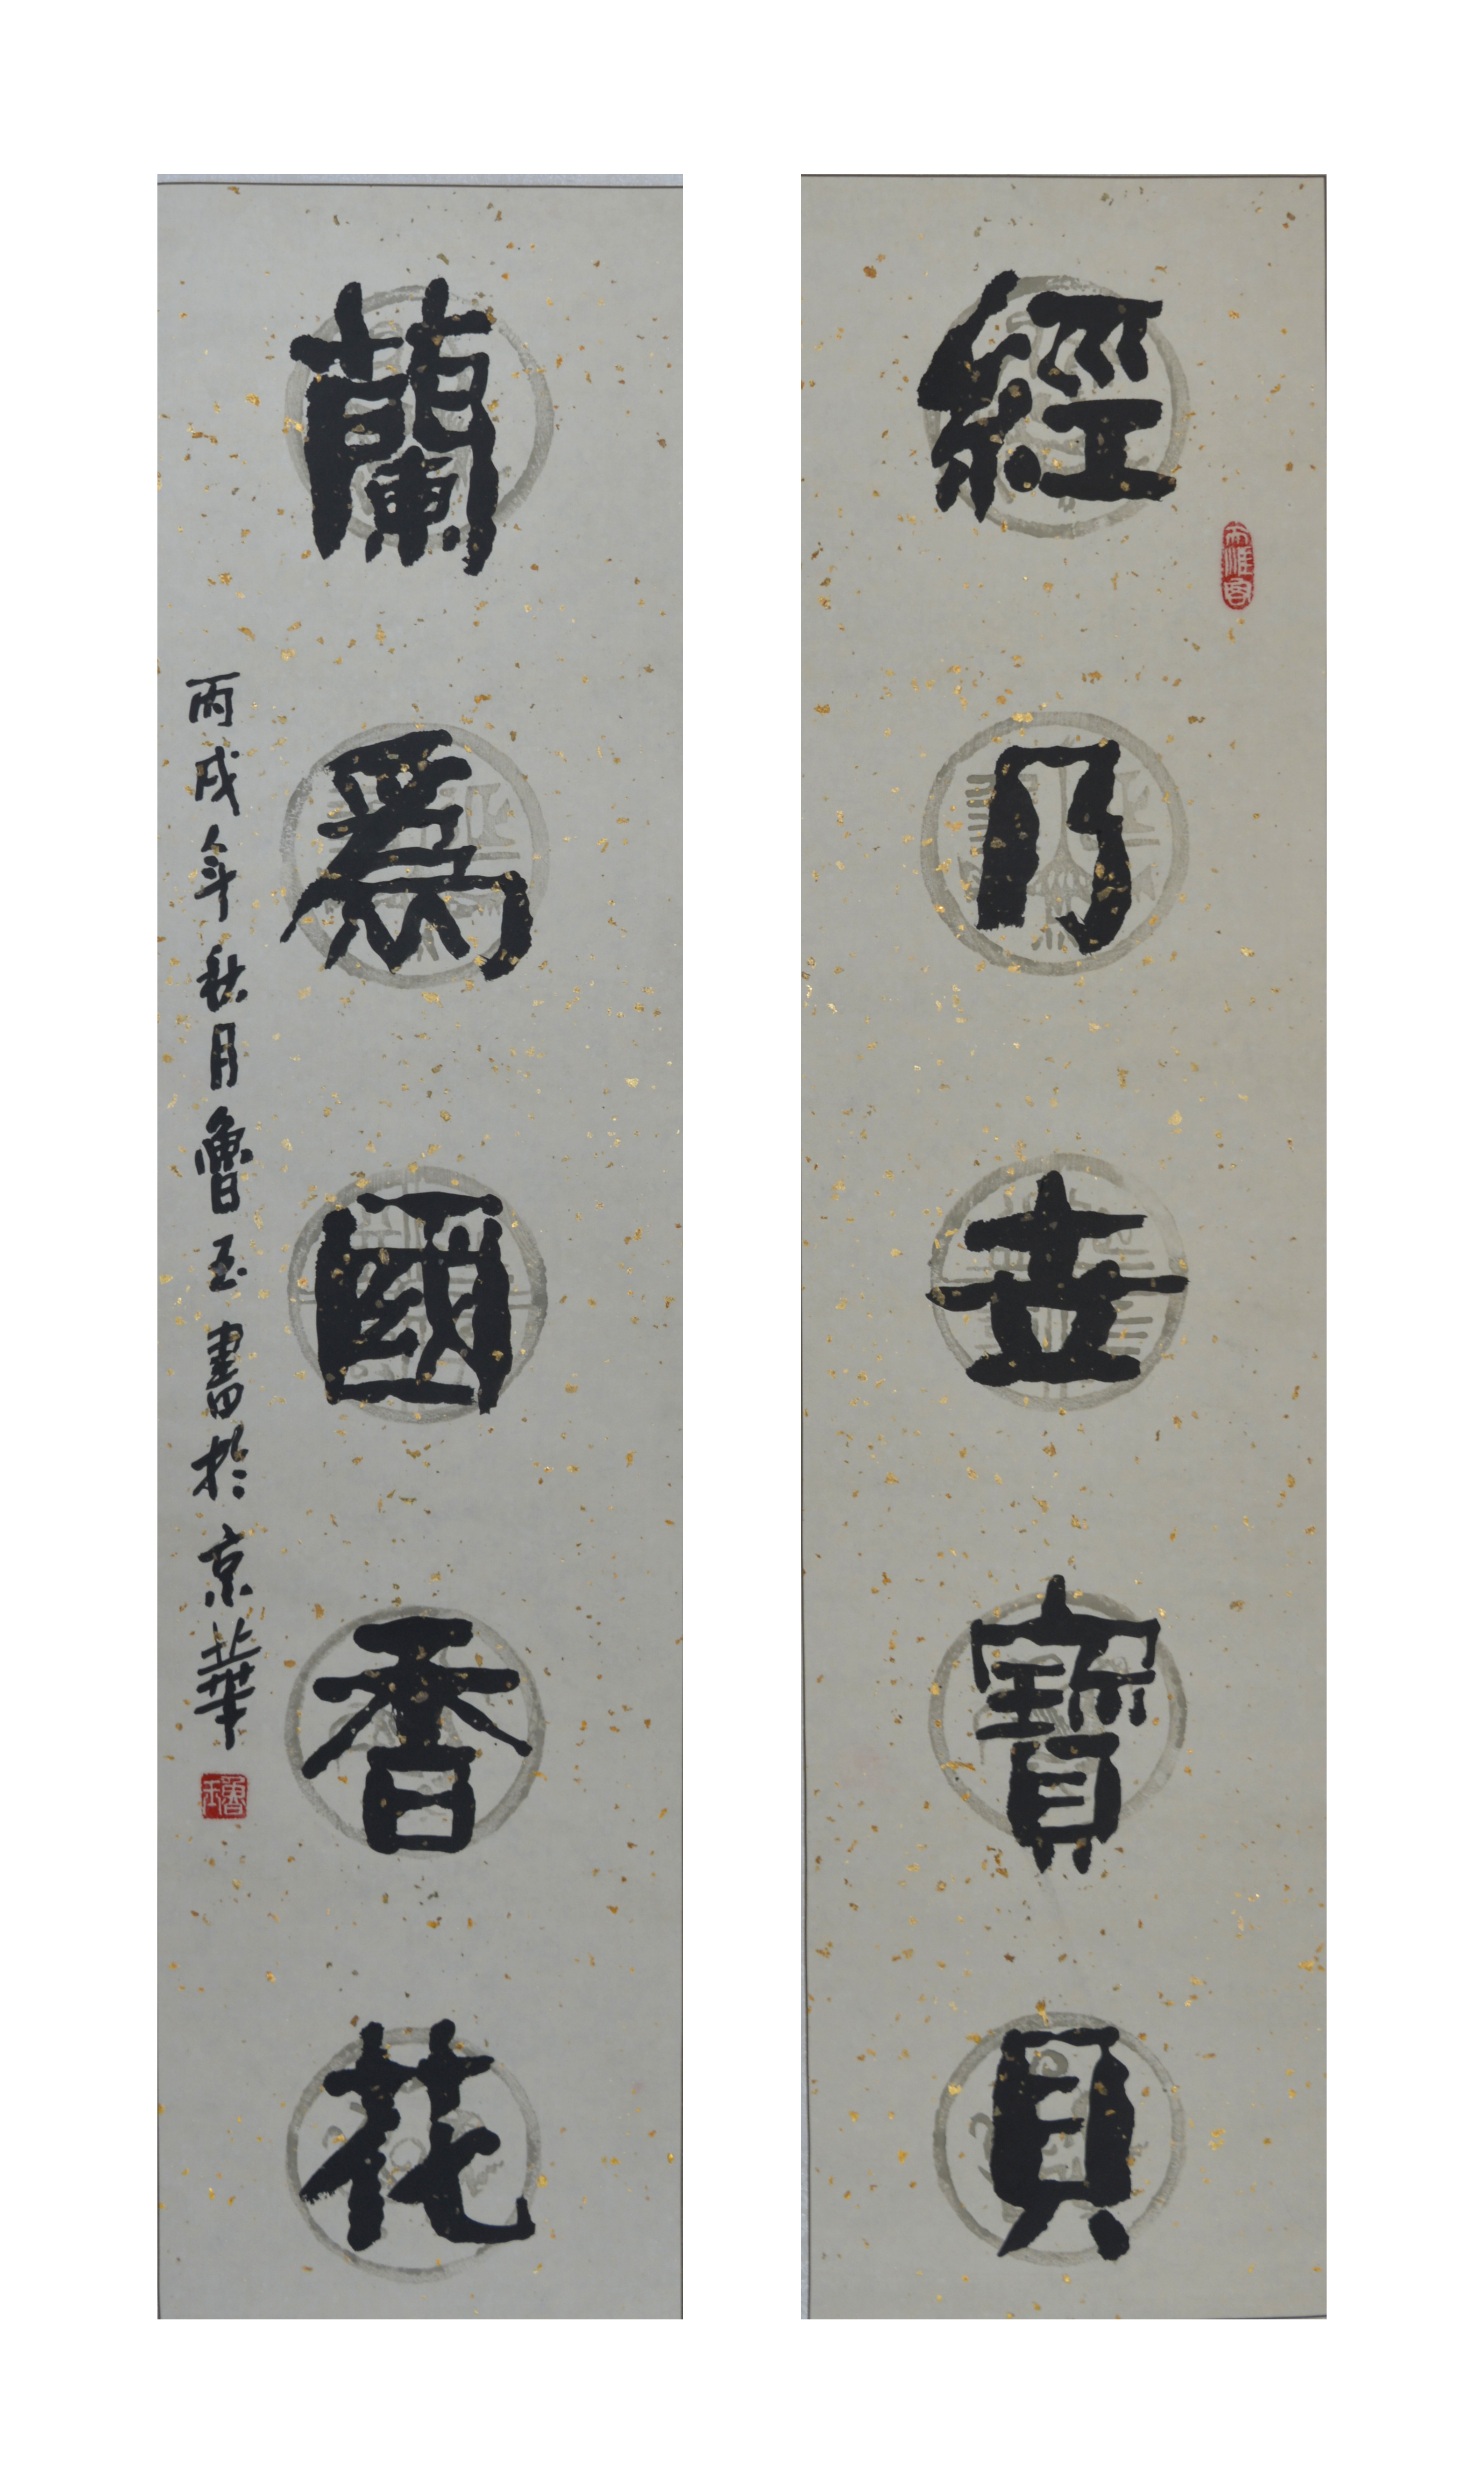 經乃世寶貝
蘭爲國香花
丙戌年秋月魯玉書於京華
魯玉